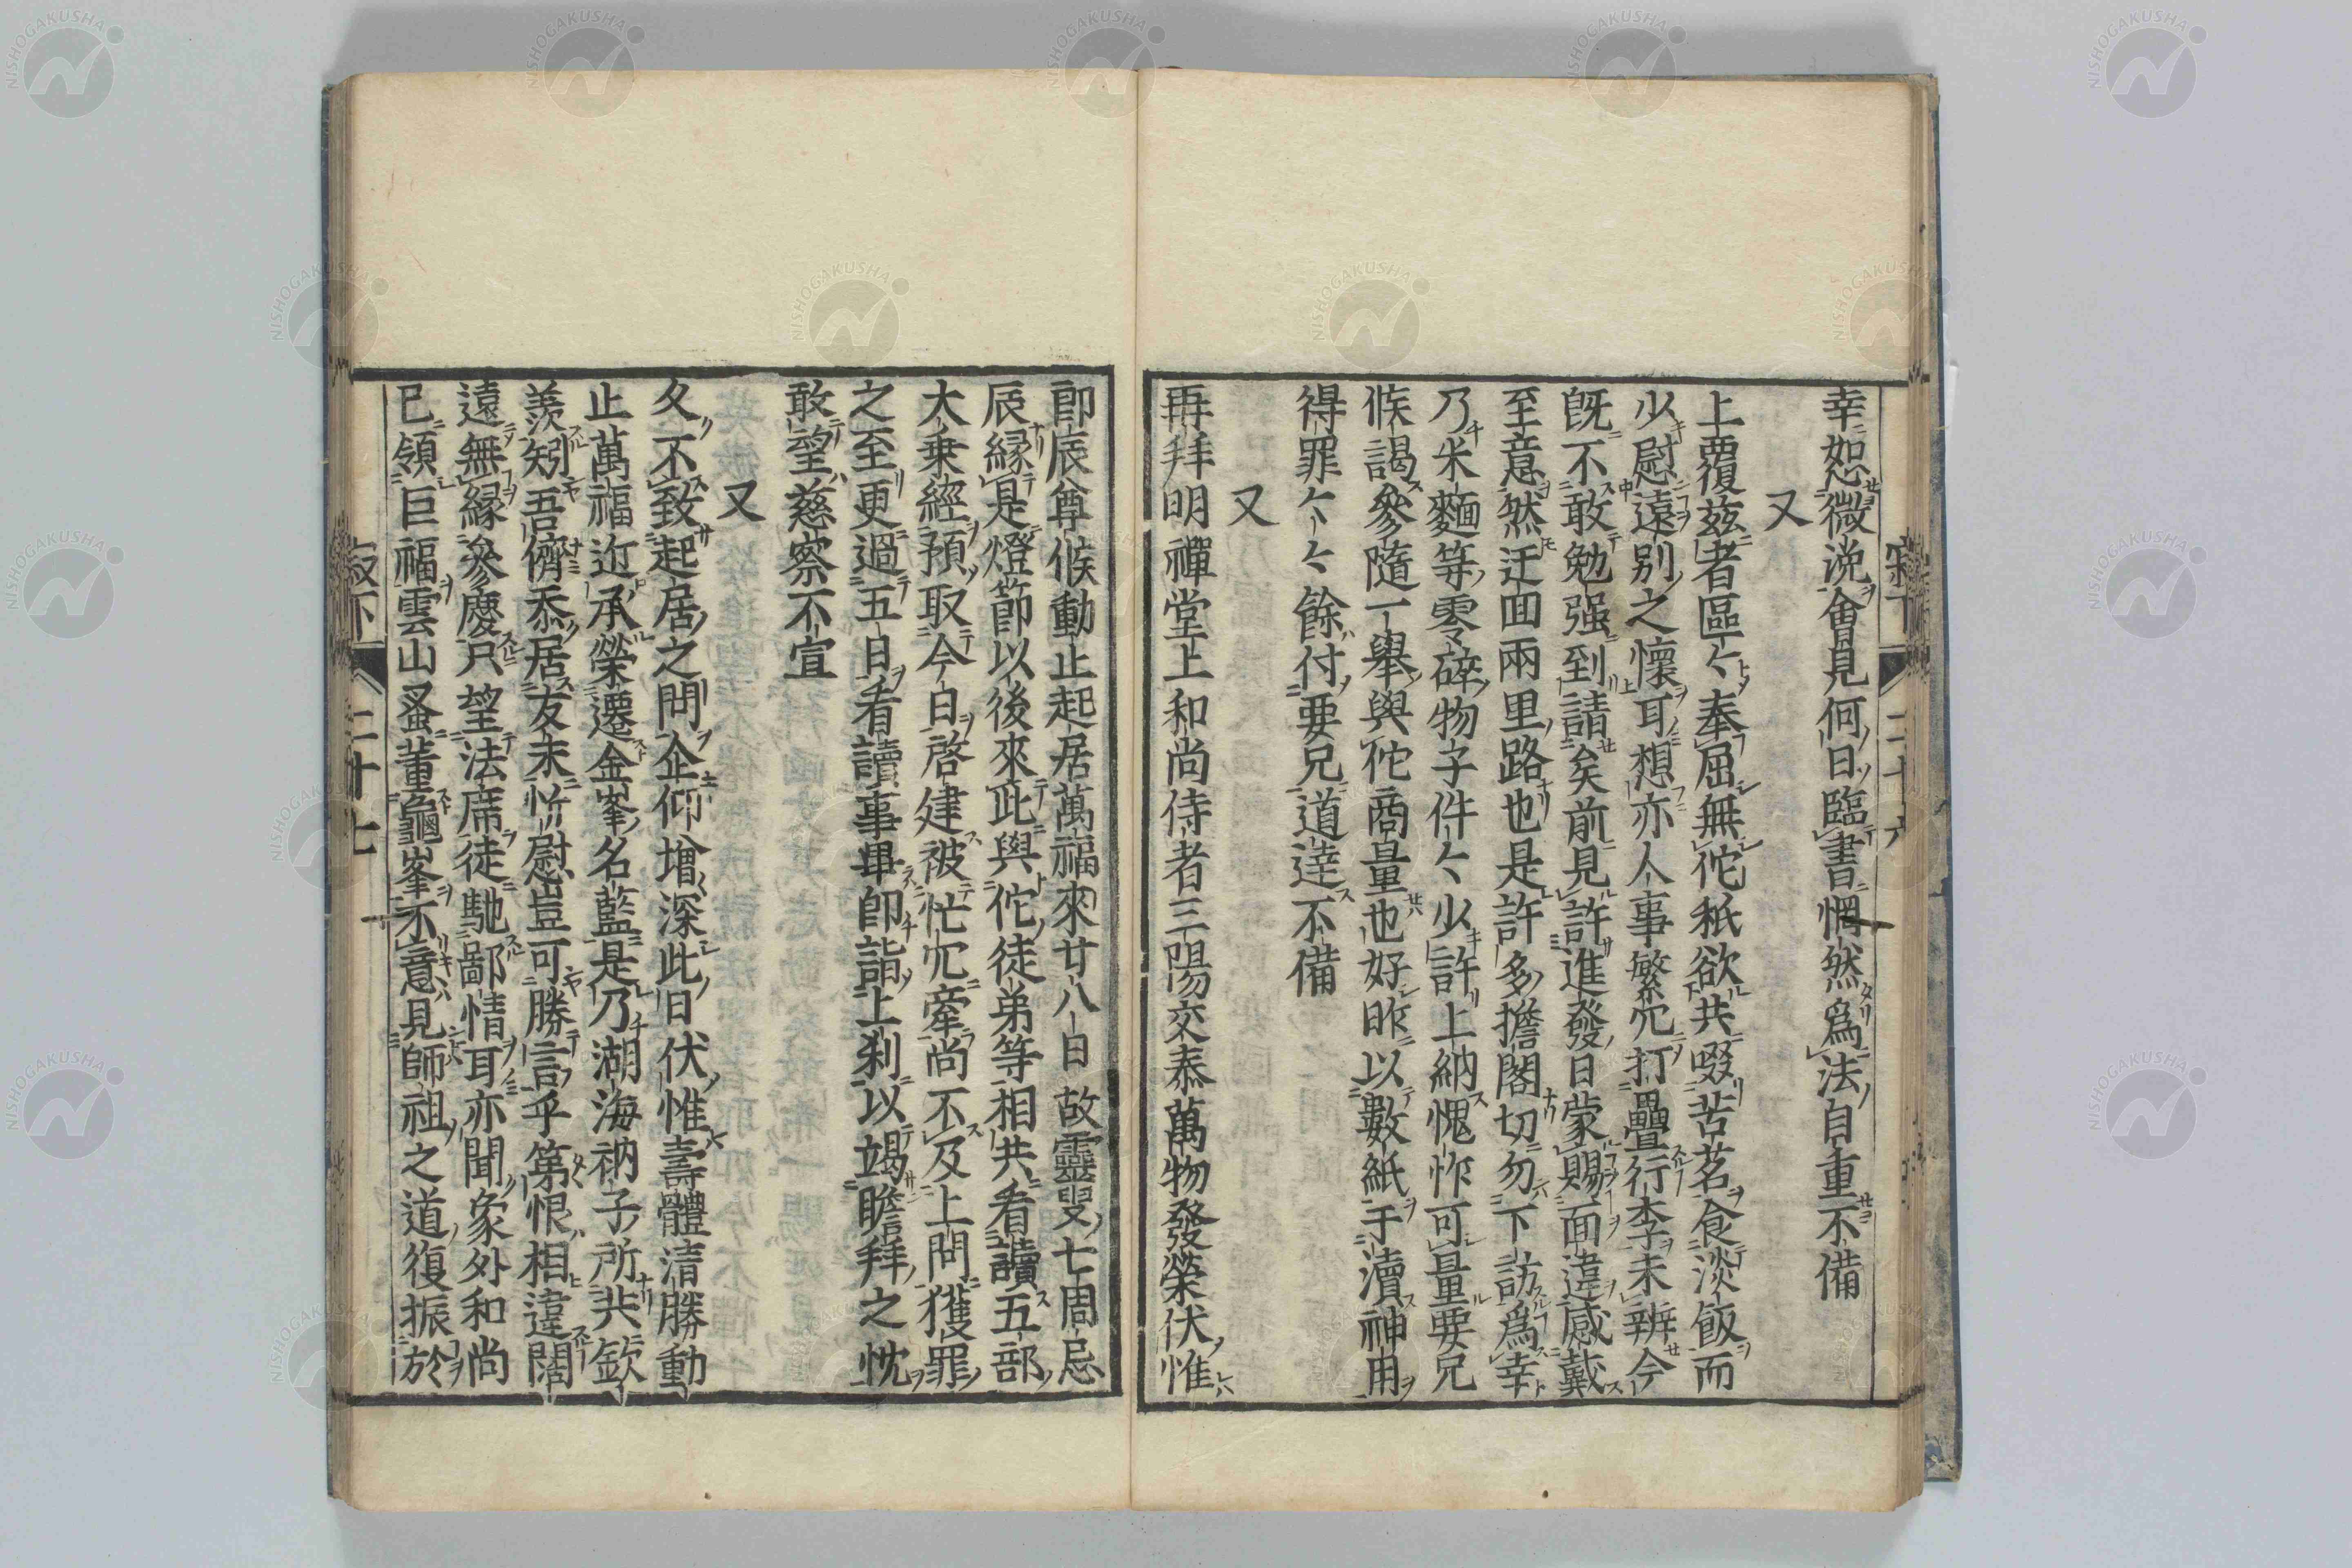 幸恕微浼會見何日臨書惘然爲法自重不備
又
上覆玆者區々奉屈無佗秖欲共啜苦茗食淡飯而
少慰遠别之懷耳想亦人事繁冗打疊行李未辨今
旣不敢勉强到請矣前見許進發日蒙賜面違感戴
至意然迂囬兩里路也是許多擔閣切勿下訪爲幸
乃米麵等零碎物子件々少許上納愧怍可量要兄
候謁參隨一擧與佗商量也好昨以數紙于瀆神用
得罪々々餘付要兄道達不備
又
再拜明禪堂上和尚侍者三陽交泰萬物發榮伏惟
卽辰尊候動止起居萬福來廿八日故靈叟七周忌
辰緣是燈節以後來此與佗徒弟等相共看讀五部
大乗經預取今日啓建被忙冗牽尚不及上問獲罪
之至更過五日看讀事畢卽詣上刹以竭瞻拜之忱
敢望慈察不宣
又
久不致起居之問企仰增深此日伏惟壽體清勝動
止萬福近承榮遷金峯名藍是乃湖海衲子所共欽
羨矧吾儕忝居友末忻慰豈可勝言乎第恨相違闊
遠無緣參慶只望法席徒馳鄙情耳亦聞象外和尚
已領巨福雲山蚤董龜峯不意見師祖之道復振於
寂下 二十七
二十六